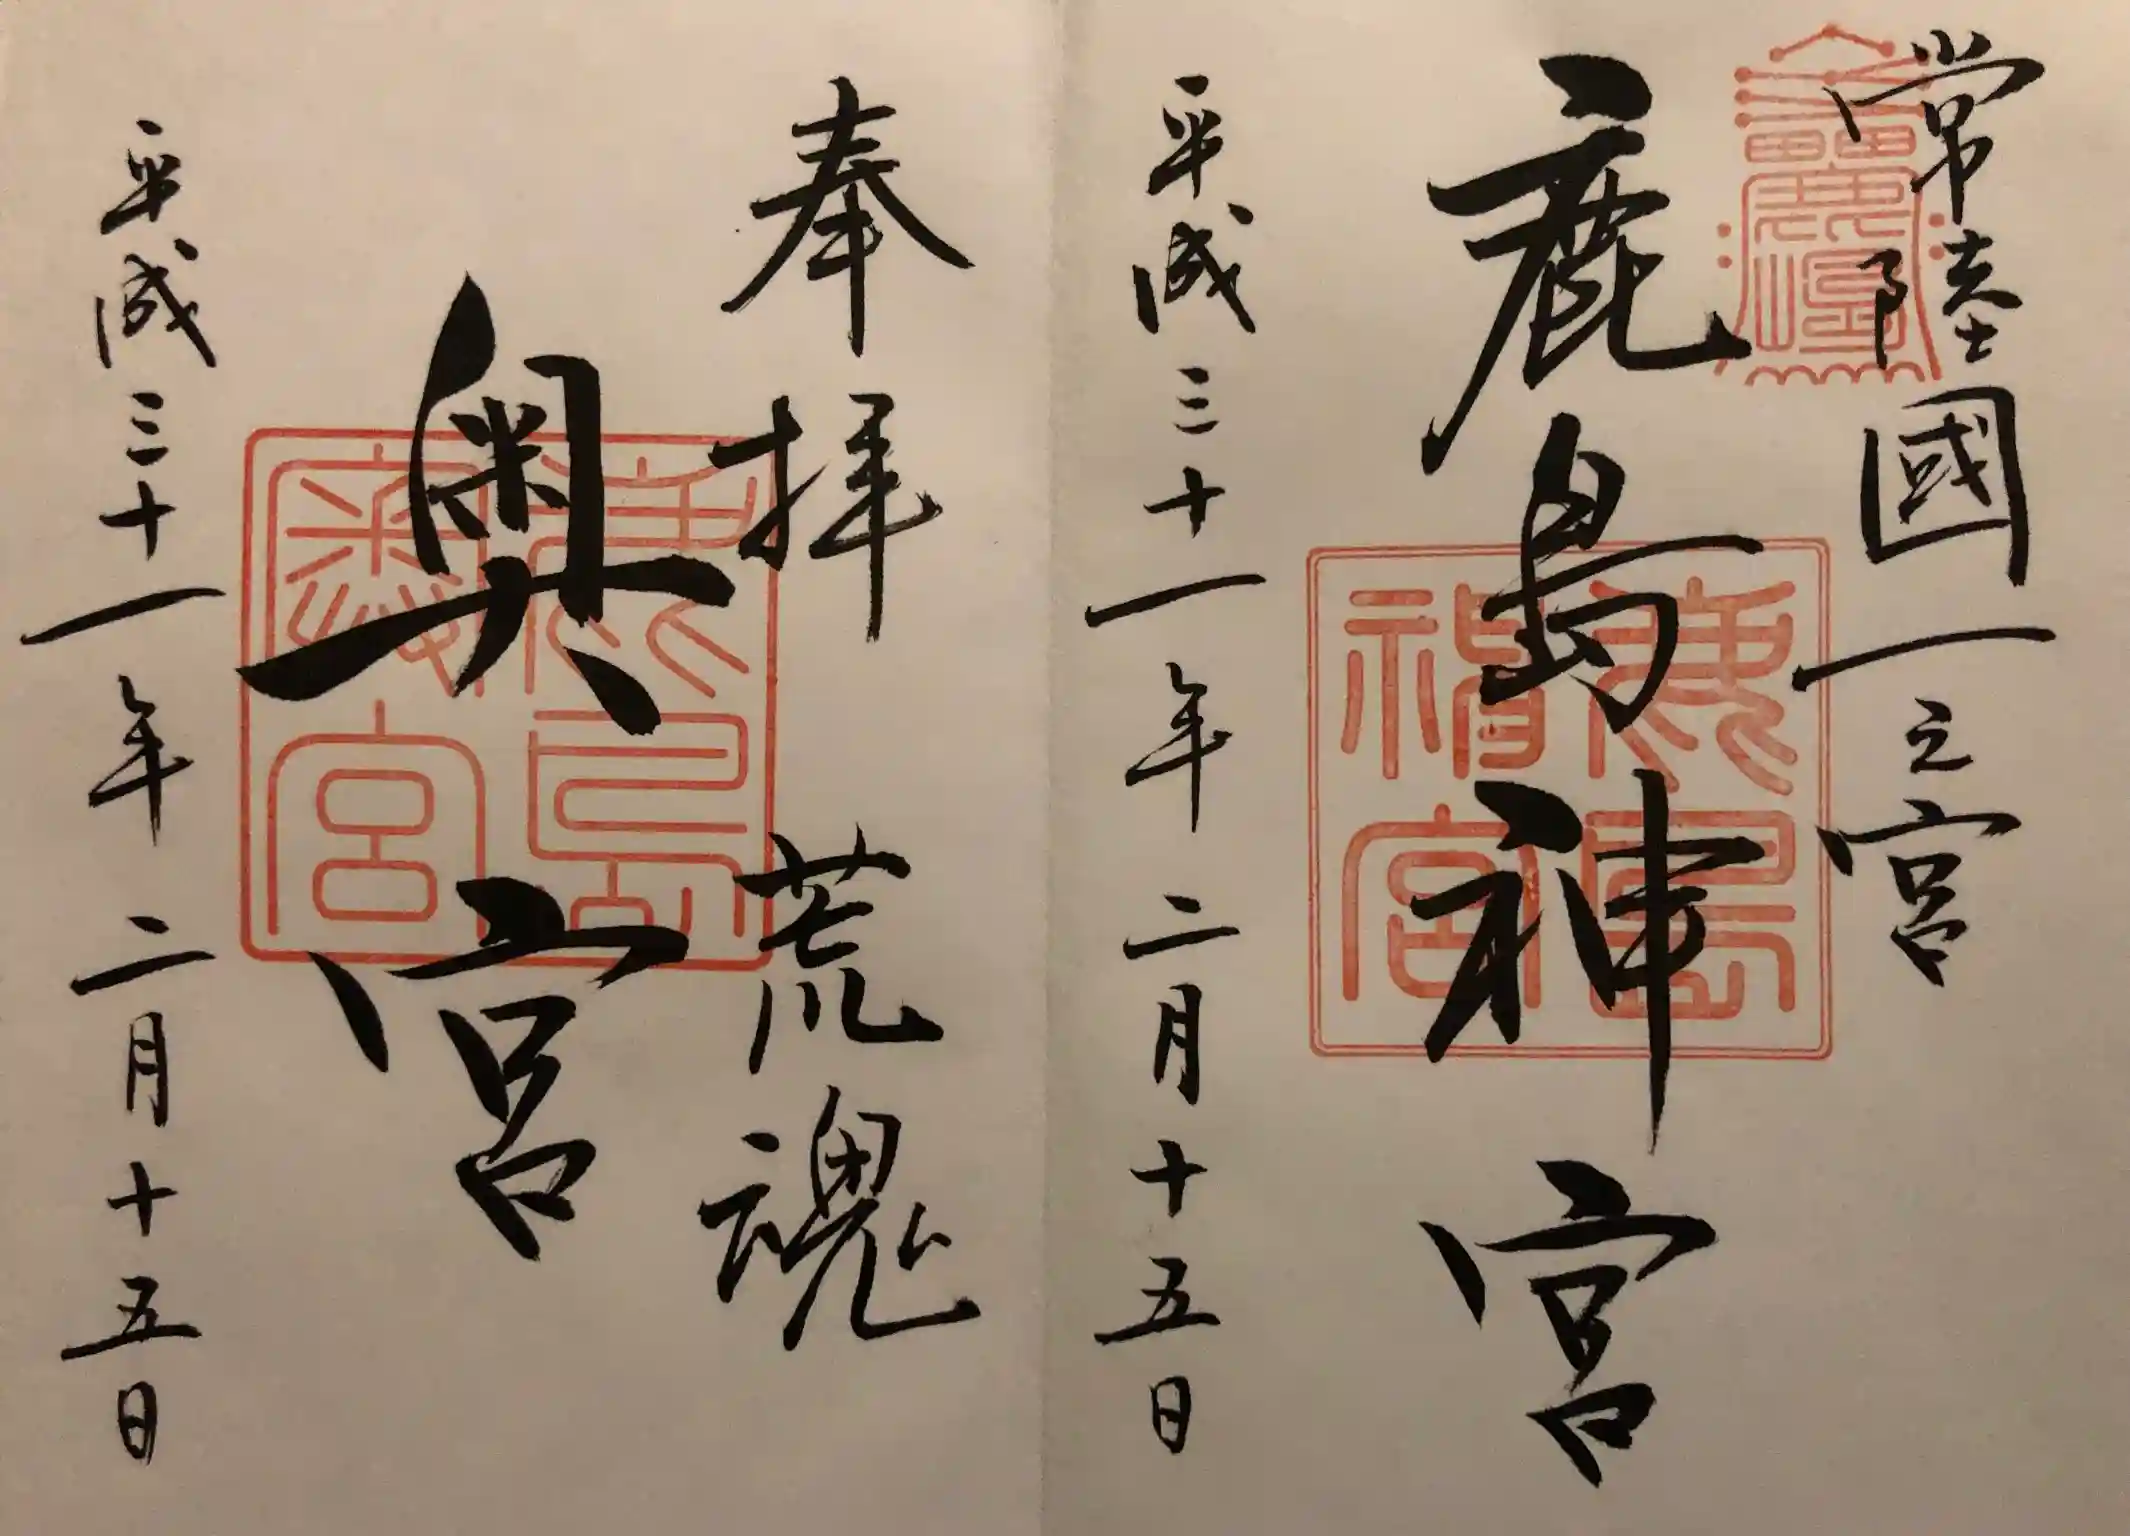 常陸國一之宮
鹿島神宮
平成三十一年二月十五日
奉拝 荒魂
奥宮
平成三十一年二月十五日
鹿島神宮